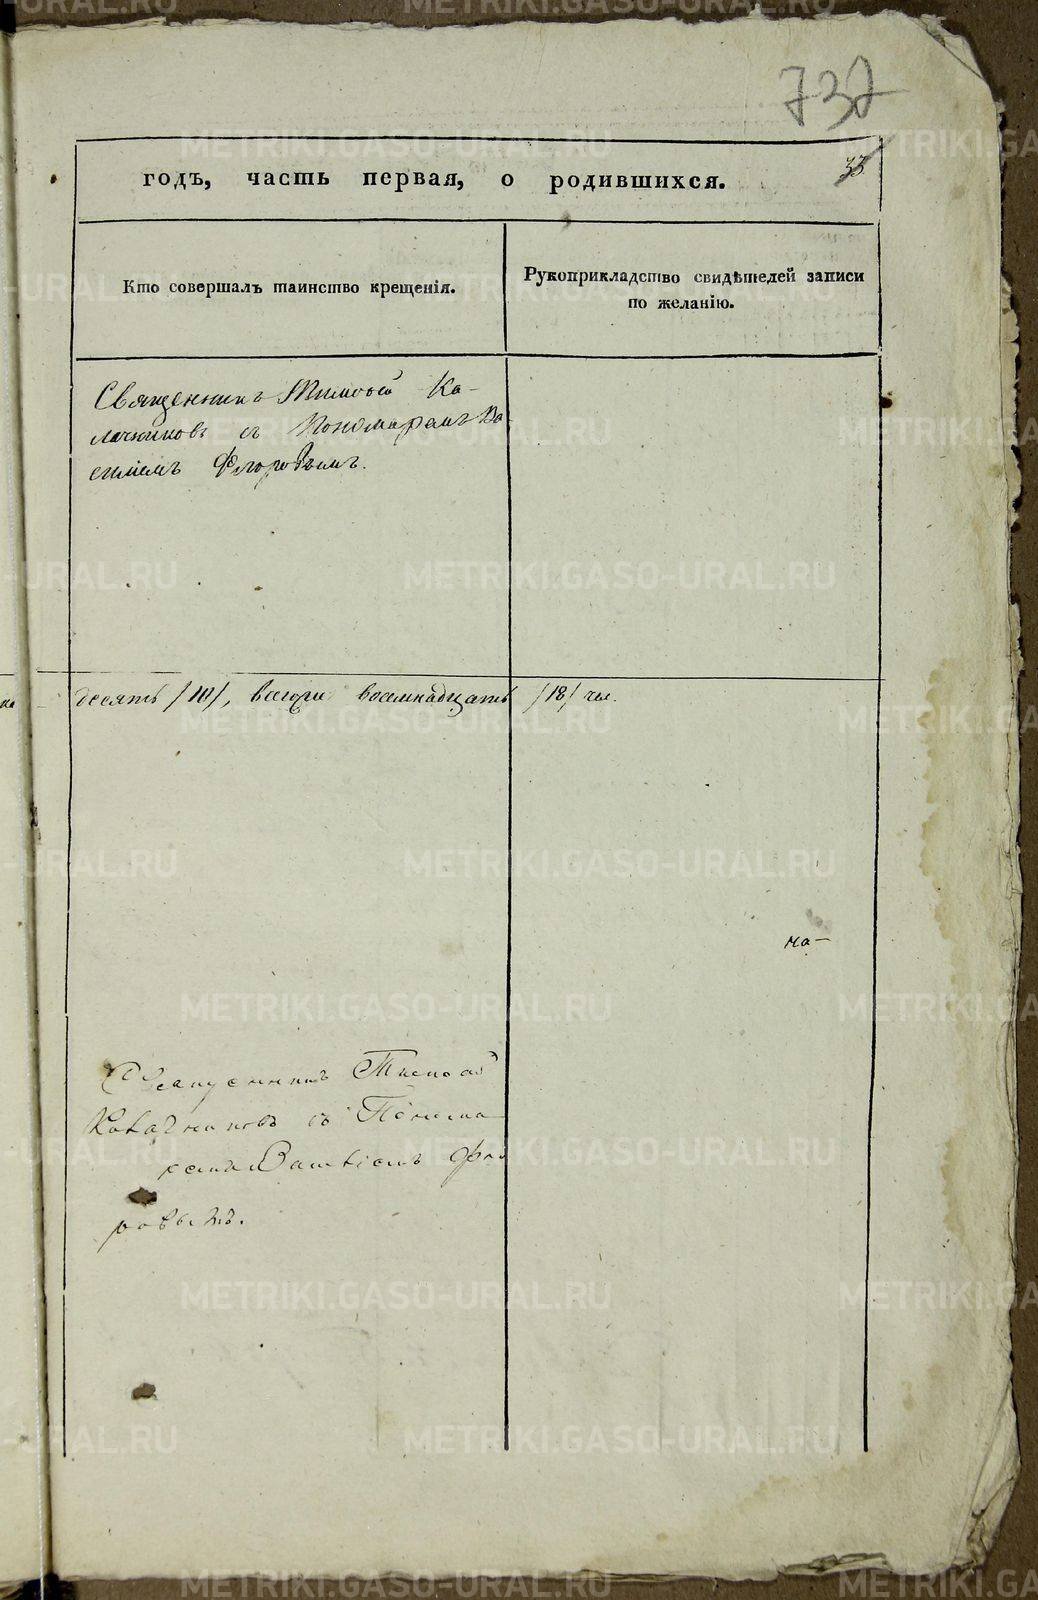 737
33
годъ, часть первая, о родившихся.
Кто совершалъ таинство крещенія.
Рукоприкладство свидѣтелей записи
по желанію.
Священникъ Тимофей Ка-
лачниковъ съ Пономаремъ Ва
силіемъ Флоровымъ.
десять /10/, всего восемнадцать /18/ чел.
на-
Священникъ Тимофей
Калачниковъ съ Понома
ремъ Василіемъ Фло
ровымъ.
METRIKI.GASO-URAL.RU